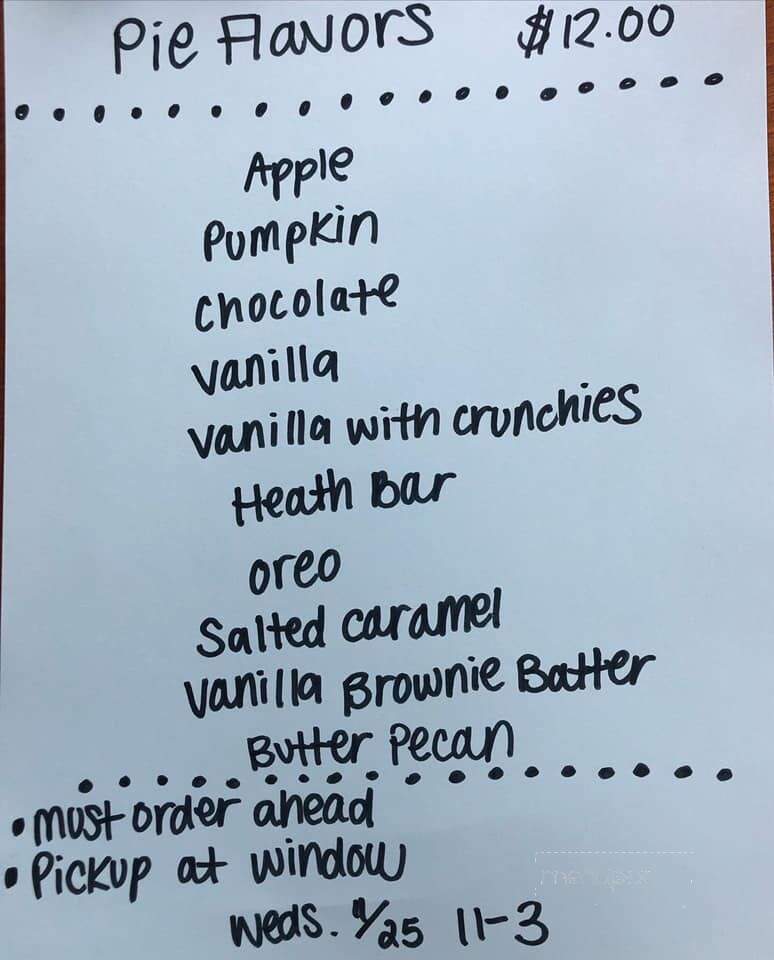 Pie Flavors $12.00
Apple
Pumpkin
Chocolate
Vanilla
Vanilla with crunchies
Heath Bar
oreo
Salted caramel
Vanilla Brownie Batter
Butter Pecan
• must order ahead
• Pickup at window
Weds. 11/25 11-3